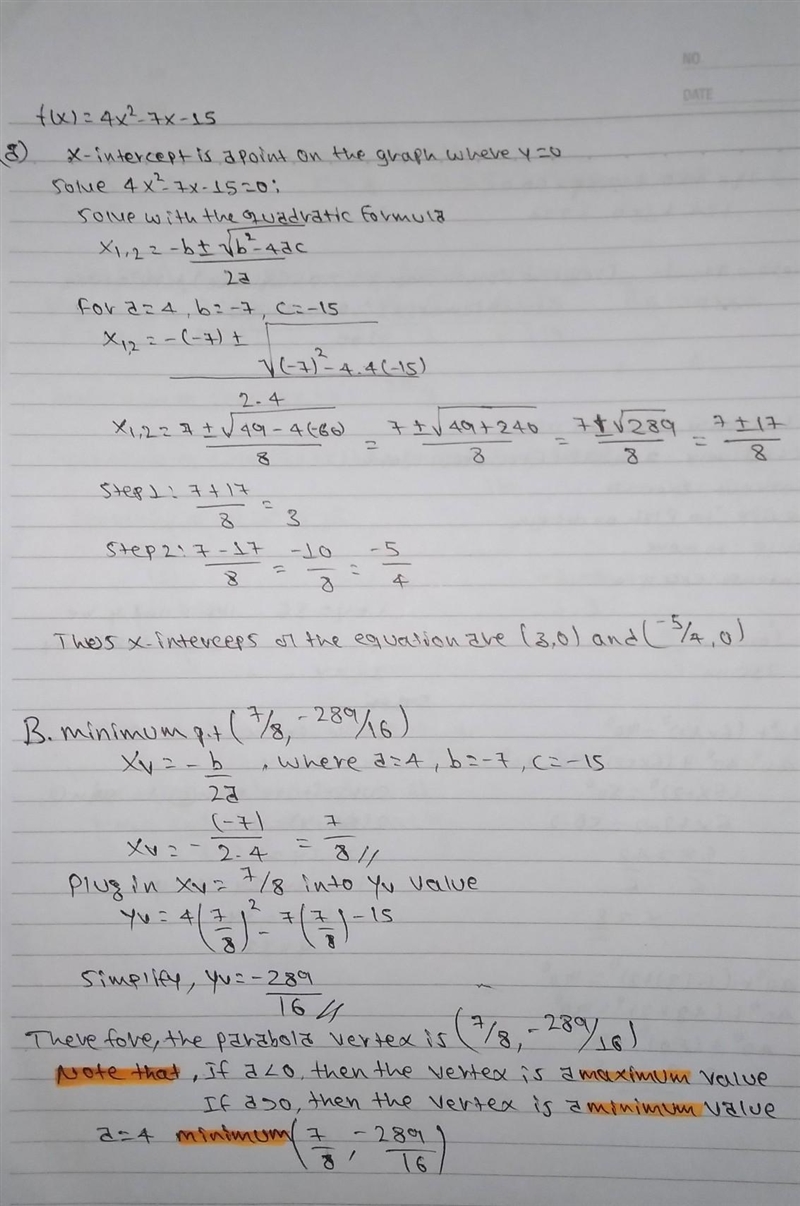 NO
DATE
f(x) = 4x² - 7x - 15
(a) x-intercept is a point on the graph where y=0
Solve 4x² - 7x - 15 = 0;
Solve with the quadratic formula
x₁,₂ = -b ± √b² - 4ac / 2a
for a = 4, b = -7, c = -15
x₁,₂ = -(-7) ± √(-7)² - 4.4(-15) / 2.4
x₁,₂ = 7 ± √49 - 4(-60) / 8 = 7 ± √49 + 240 / 8 = 7 ± √289 / 8 = 7 ± 17 / 8
Step 1: 7 + 17 / 8 = 3
Step 2: 7 - 17 / 8 = -10 / 8 = -5 / 4
Thus x-interceps of the equation are (3,0) and (-5/4, 0)
B. minimum p.t (7/8, -289/16)
xv = -b / 2a, where a=4, b=-7, c=-15
xv = - (-7) / 2.4 = 7 / 8 //
Plug in xv = 7/8 into yv value
yv = 4(7/8)² - 7(7/8) - 15
Simplify, yv = -289 / 16 //
Therefore, the parabola vertex is (7/8, -289/16)
Note that, If a<0, then the vertex is a maximum value
If a>0, then the vertex is a minimum value
a=4 minimum (7/8, -289/16)